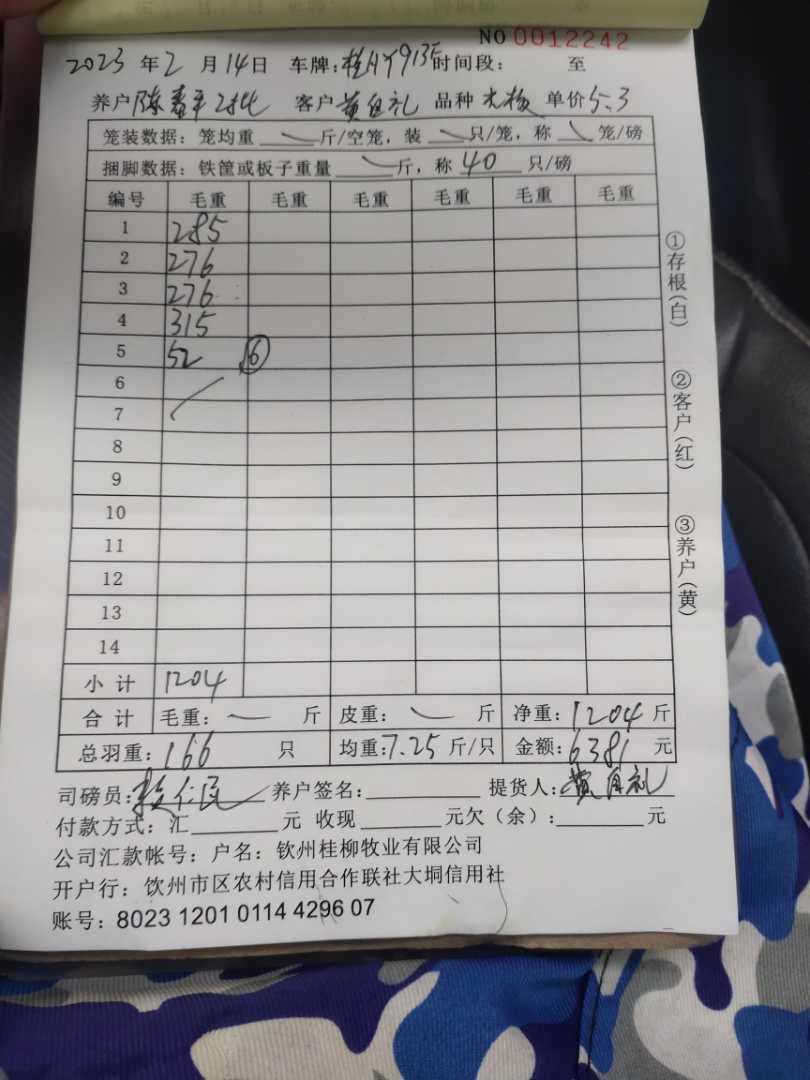 NO 0012242
2023 年 2 月 14 日 车牌: 9135 时间段: 至
养户 陈 平 2批 客户 黄自礼 品种 单价 5.3
笼装数据: 笼均重 斤/空笼, 装 只/笼, 称 笼/磅
捆脚数据: 铁筐或板子重量 斤, 称 40 只/磅
编号 毛重 毛重 毛重 毛重 毛重 毛重
1 285
2 276
3 276
4 315
5 52 ⑥
6
7
8
9
10
11
12
13
14
小计 1204
合计 毛重: 斤 皮重: 斤 净重: 1204 斤
总羽重: 166 只 均重: 7.25 斤/只 金额: 6381 元
司磅员: 仁民 养户签名: 提货人: 黄自礼
付款方式: 汇 元 收现 元欠(余): 元
公司汇款帐号: 户名: 钦州桂柳牧业有限公司
开户行: 钦州市区农村信用合作联社大垌信用社
账号: 8023 1201 0114 4296 07
①存根(白)
②客户(红)
③养户(黄)